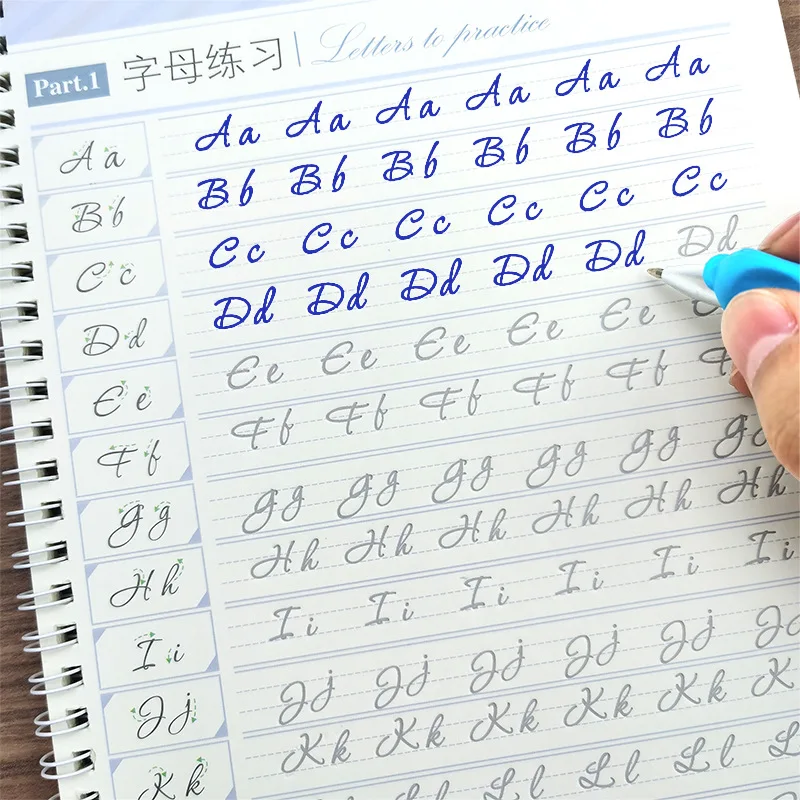 Part.1 字母练习 Letters to practice
Aa Aa Aa Aa Aa Aa Aa
Bb Bb Bb Bb Bb Bb Bb
Cc Cc Cc Cc Cc Cc Cc
Dd Dd Dd Dd Dd Dd Dd
Ee Ee Ee Ee Ee Ee
Ff Ff Ff Ff Ff Ff
Gg Gg Gg Gg Gg Gg Gg
Hh Hh Hh Hh Hh Hh Hh
Ii Ii Ii Ii Ii Ii Ii
Jj Jj Jj Jj Jj Jj Jj
Kk Kk Kk Kk Kk Kk K
Ll Ll Ll